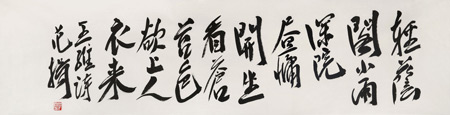 輕蔭
閣小雨
深院
晝慵
開坐
看蒼
苔色
欲上人
衣来
王維詩
范揚